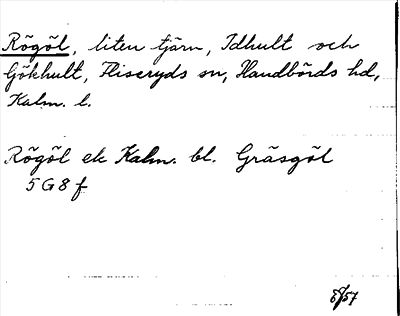 Rögöl, liten tjärn, Idhult och
Gökhult, Fliseryds sn, Handbörds hd,
Kalm. l.
Rögöl ek Kalm. bl. Gräsgöl
5G8f
8/57